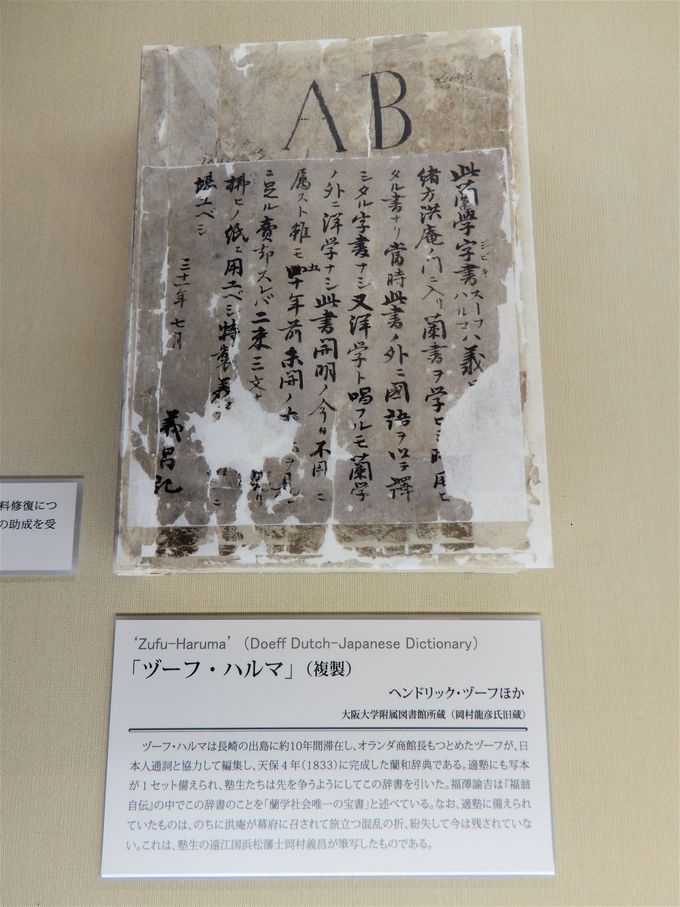 AB
此蘭學字書ジビキスーフハルマハ義
緒方洪庵ノ門ニ入リ蘭書ヲ学ヒシ時用ヒ
タル書ナリ當時此書ノ外ニ國語ヲ以テ譯
シタル字書ナシ又洋学ト唱フルモ蘭学
ノ外ニ洋学ナシ此書開明ノ今日不用ニ
属スト雖モ十年前未開ノヲ見
ニ足ル賣却スレバ二束三文
拂ヒノ紙ニ用エベシ
エベシ
三十一年七月
義昌記
料修復につ
の助成を受
‘Zufu-Haruma’ (Doeff Dutch-Japanese Dictionary)
「ヅーフ・ハルマ」(複製)
ヘンドリック・ヅーフほか
大阪大学附属図書館所蔵(岡村龍彦氏旧蔵)
ヅーフ・ハルマは長崎の出島に約10年間滞在し、オランダ商館長もつとめたヅーフが、日
本人通詞と協力して編集し、天保4年(1833)に完成した蘭和辞典である。適塾にも写本
が1セット備えられ、塾生たちは先を争うようにしてこの辞書を引いた。福澤諭吉は『福翁
自伝』の中でこの辞書のことを「蘭学社会唯一の宝書」と述べている。なお、適塾に備えられ
ていたものは、のちに洪庵が幕府に召されて旅立つ混乱の折、紛失して今は残されていな
い。これは、塾生の遠江国浜松藩士岡村義昌が筆写したものである。